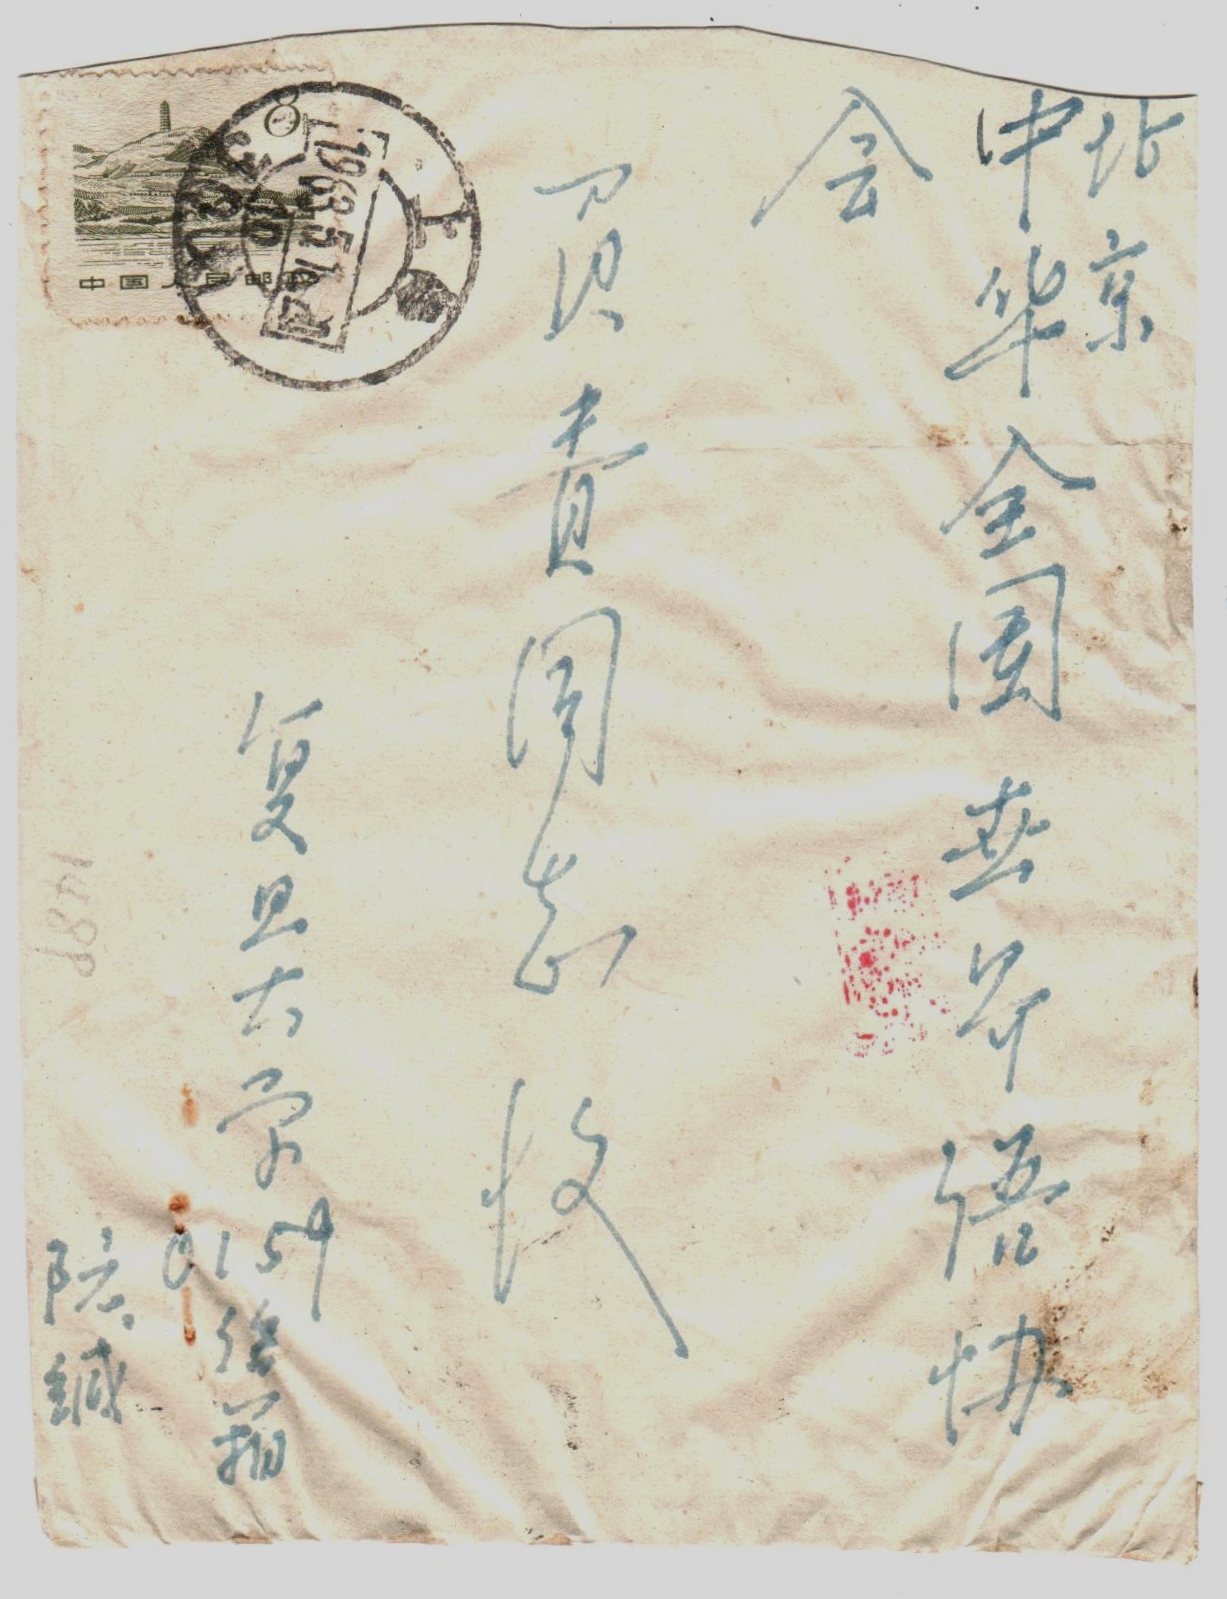 北京
中华全国世界语协
会
同志收
复旦大学
0159信箱
陈缄
8
中国人民邮政
上海
1963.5.1
1489